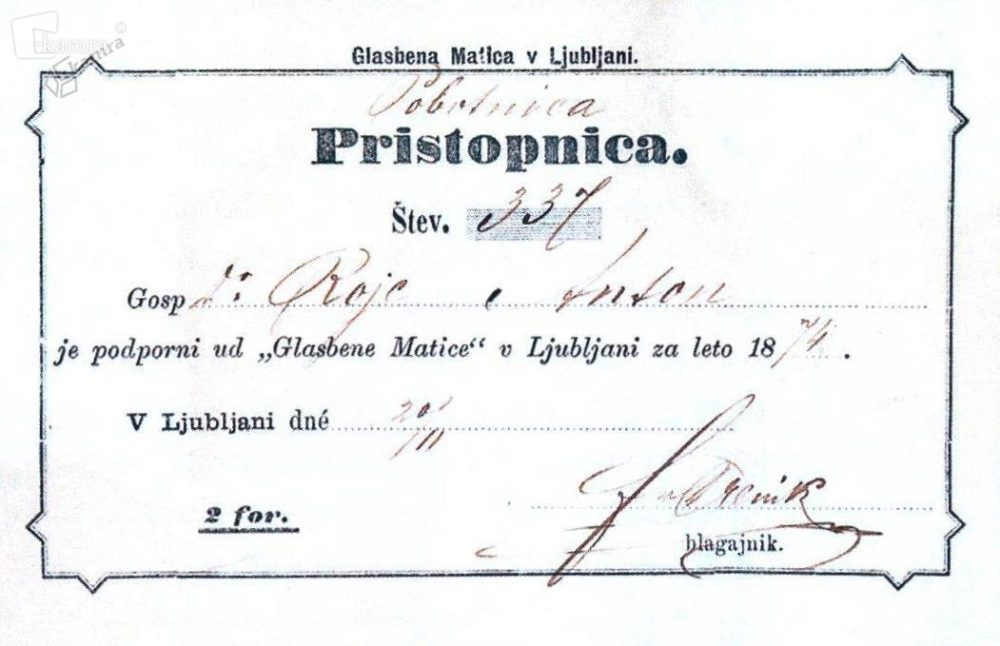 kamra
Glasbena Matica v Ljubljani.
Pobotnica
Pristopnica.
Štev. 337
Gosp dr Roje Anton
je podporni ud „Glasbene Matice“ v Ljubljani za leto 1874.
V Ljubljani dné 20/11
2 for.
blagajnik.